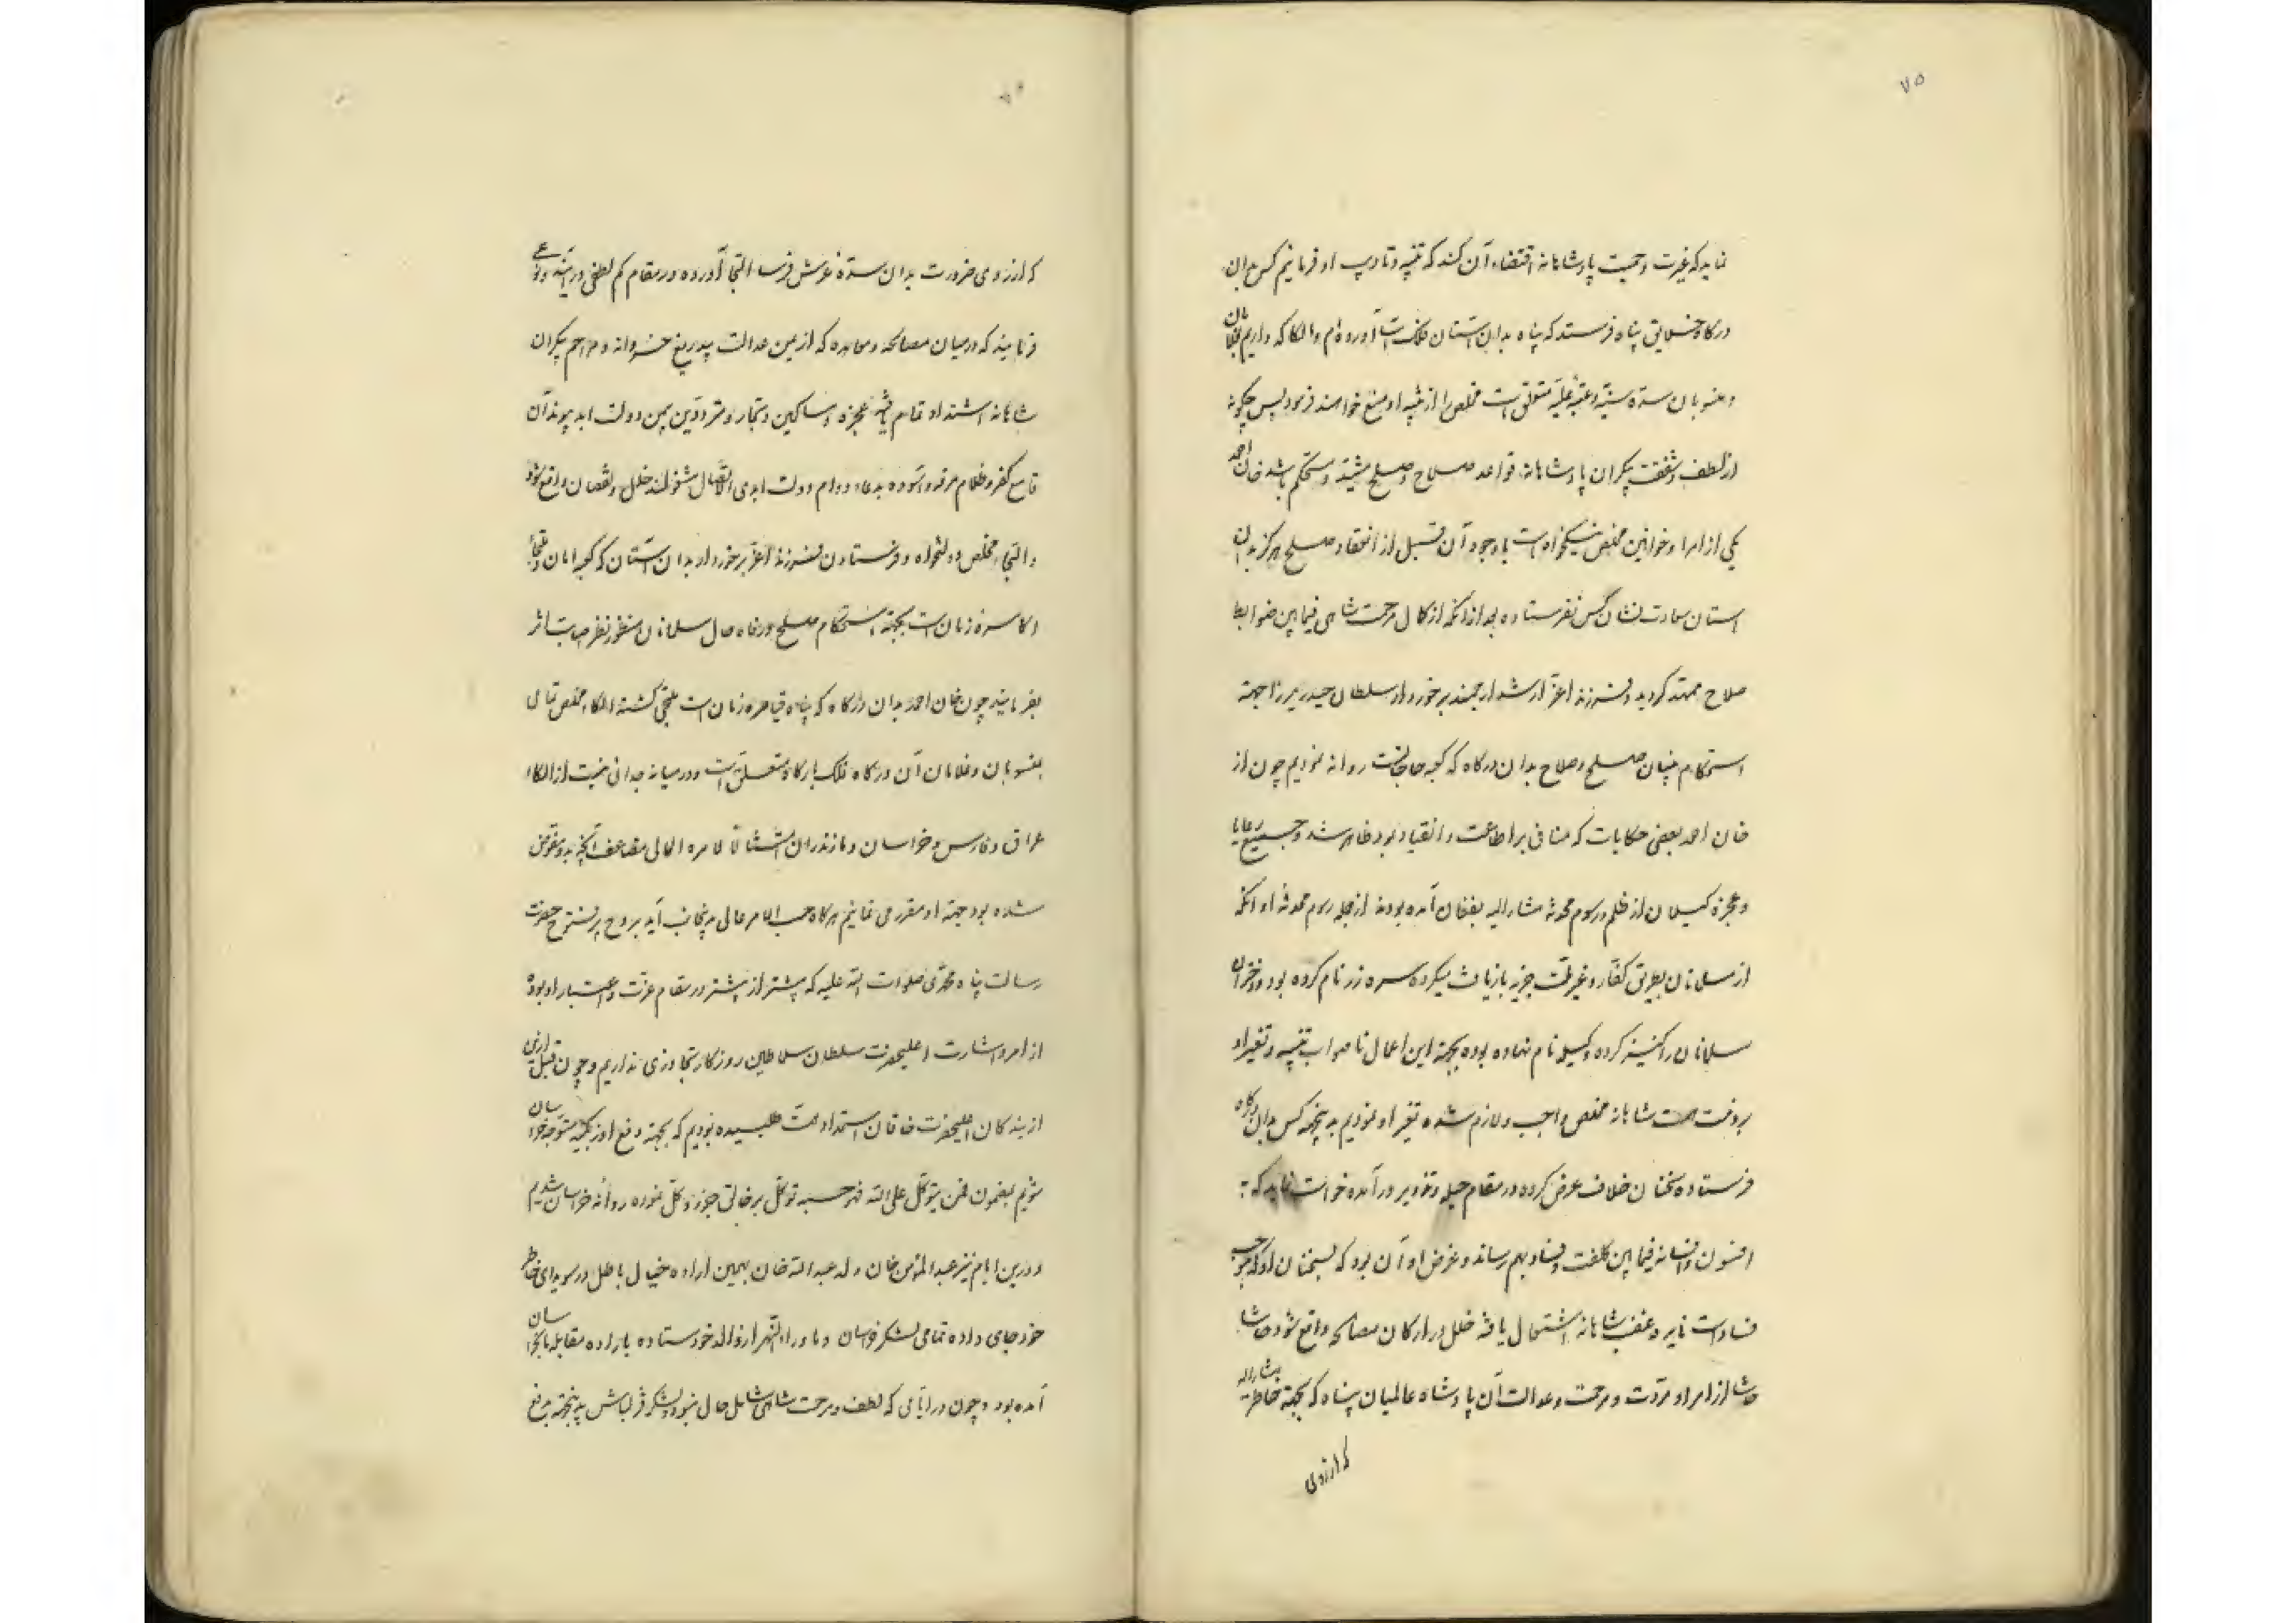 ۷۵
نماید که غیرت و حمیت پادشاهانه اقتضاء آن کند که تنبیه و تادیب او فرمائیم کس بدان
درگاه خلایق پناه فرستد که پناه بدان آستان ملک آورده‌ام و الکا که داریم بغلامان
و منسوبان سده سنیه و عتبه علیه متعلق است مخلص را از تنبیه او منع خواهند فرمود پس چگونه
از لطف و شفقت بیکران پادشاهانه قواعد صلاح و صلح مشید و مستحکم باشد خان احمد
یکی از امرا و خوانین مخلص نیکخواه است با وجود آن قبل از انعقاد صلح هرگز بدان
استان سعادت نشان کس نفرستاده بعد از آنکه از کمال مرحمت شاهی فیمابین ضوابط
صلاح ممهد گردید و فرزند اعز ارشد ارجمند برخوردار سلطان حیدر میرزا جهة
استحکام بنیان صلح و صلاح بدان درگاه که کعبه حاجاتست روانه نمودیم چون از
خان احمد بعضی حکایات که منافی بر اطاعت و انقیاد بود ظاهر شد و جمیع رعایا
و عجزه کیلان از ظلم و رسوم محدثه مشارالیه بفغان آمده بودند از جمله رسوم محدثه او آنکه
از مسلمانان بطریق کفار و غیر ملت جزیه بازیافت میکرده سره زر نام کرده بود و دختران
مسلمانان را کنیز کرده و کیله نام نهاده بوده بجهة این اعمال ناصواب تنبیه و تغییر او
بر ذمت همت شاهانه مخلص واجب و لازم شده تغییر او نمودیم به پنجهة کس بدان درگاه
فرستاده سخنان خلاف عرض کرده در مقام حیله و تزویر در آمده خواست نماید که به
افسون و افسانه فیمابین کلفت و فساد بهم رساند و غرض او آن بود که بسخنان او که موجب
فساد است نایره غضب شاهانه اشتعال یافته خلل در ارکان مصالحه واقع شود حاشا
حاشا از امر او مروت و مرحمت و عدالت آن پادشاه عالمیان پناه که بجهة خاطر مشارالیه
که از روی
که از روی ضرورت بدان سده عرش فرسا التجا آورده در مقام کم لطفی در آیند و نوعی
فرمایند که در میان مصالحه و معاهده که از یمن عدالت بیدریغ خسروانه و مراحم بیکران
شاهانه اشتداد تمام یافته عجزه و مساکین و تجار و مترددین بیمن دولت ابد پیوند آن
قامع کفر و ظلام مرفه و آسوده بدعاء دوام دولت ابدی الاتصال مشغولند خلل و نقصان واقع شود
و التجاء مخلص دولتخواه و فرستادن فرزند اعز برخوردار بدان آستان که کعبه امان و ملجأ
اکاسره زمان است بجهة استحکام صلح و رفاه حال مسلمانان منظور نظر اصابت اثر
بفرمایند چون خان احمد بدان درگاه که پناه قیاصره زمان است ملتجی کشته الکاء مخلص تمامی
بمنسوبان و غلامان آن درگاه فلک بارگاه متعلق است و در میانه جدائی نیست از الکاء
عراق و فارس و خراسان و مازندران امتثالا لامره العالی مضاعف آنچه بدو مفوض
شده بود جهة او مقرر می نمائیم هرگاه حسب الامر عالی بدینجانب آید بروح پرفتوح حضرت
رسالت پناه محمدی صلوات الله علیه که بیشتر از پیشتر در مقام عزت و اعتبار او بوده
از امر و اشارت اعلیحضرت سلطان سلاطین روزکار تجاوزی نداریم و چون قبل ازین
از بندکان اعلیحضرت خاقان استمداد همت طلبیده بودیم که بجهة دفع اوزبکیه متوجه خراسان
شویم بمضمون فمن یتوکل علی الله فهو حسبه توکل بر خالق جزو و کل نموده روانه خراسان شدیم
و درین ایام نیز عبدالمؤمن خان ولد عبدالله خان بهمین اراده خیال باطل در سویدای خاطر
خود جای داده تمامی لشکر خراسان و ماوراءالنهر از والد خود ستاده باراده مقابله با بخراسان
آمده بود و چون در ایامی که لطف و مرحمت شاهی شامل حال نبود و لشکر قزلباش به پنجهة بدفع